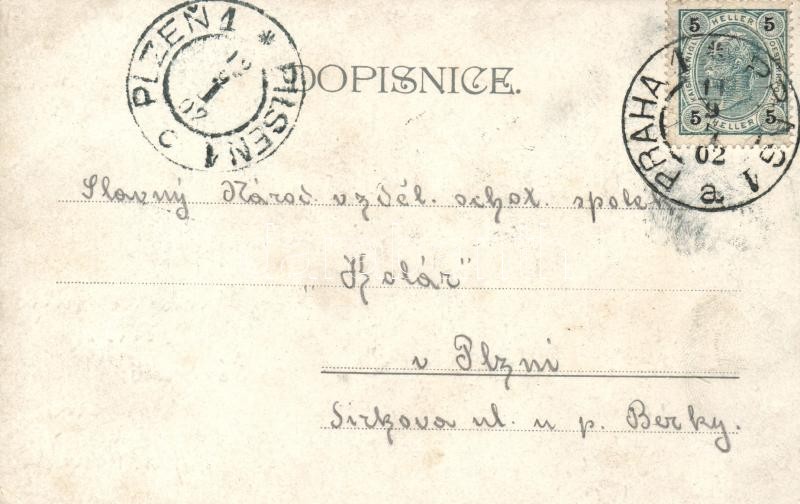 PLZEŇ 1 * PILSEN 1
02
DOPISNICE.
5 HELLER 5
5 HELLER 5
PRAHA 1
02
a
Slavný Národ. vzděl. ochot. spolek
„Kolár"
v Plzni
Sirkova ul. u p. Berky.